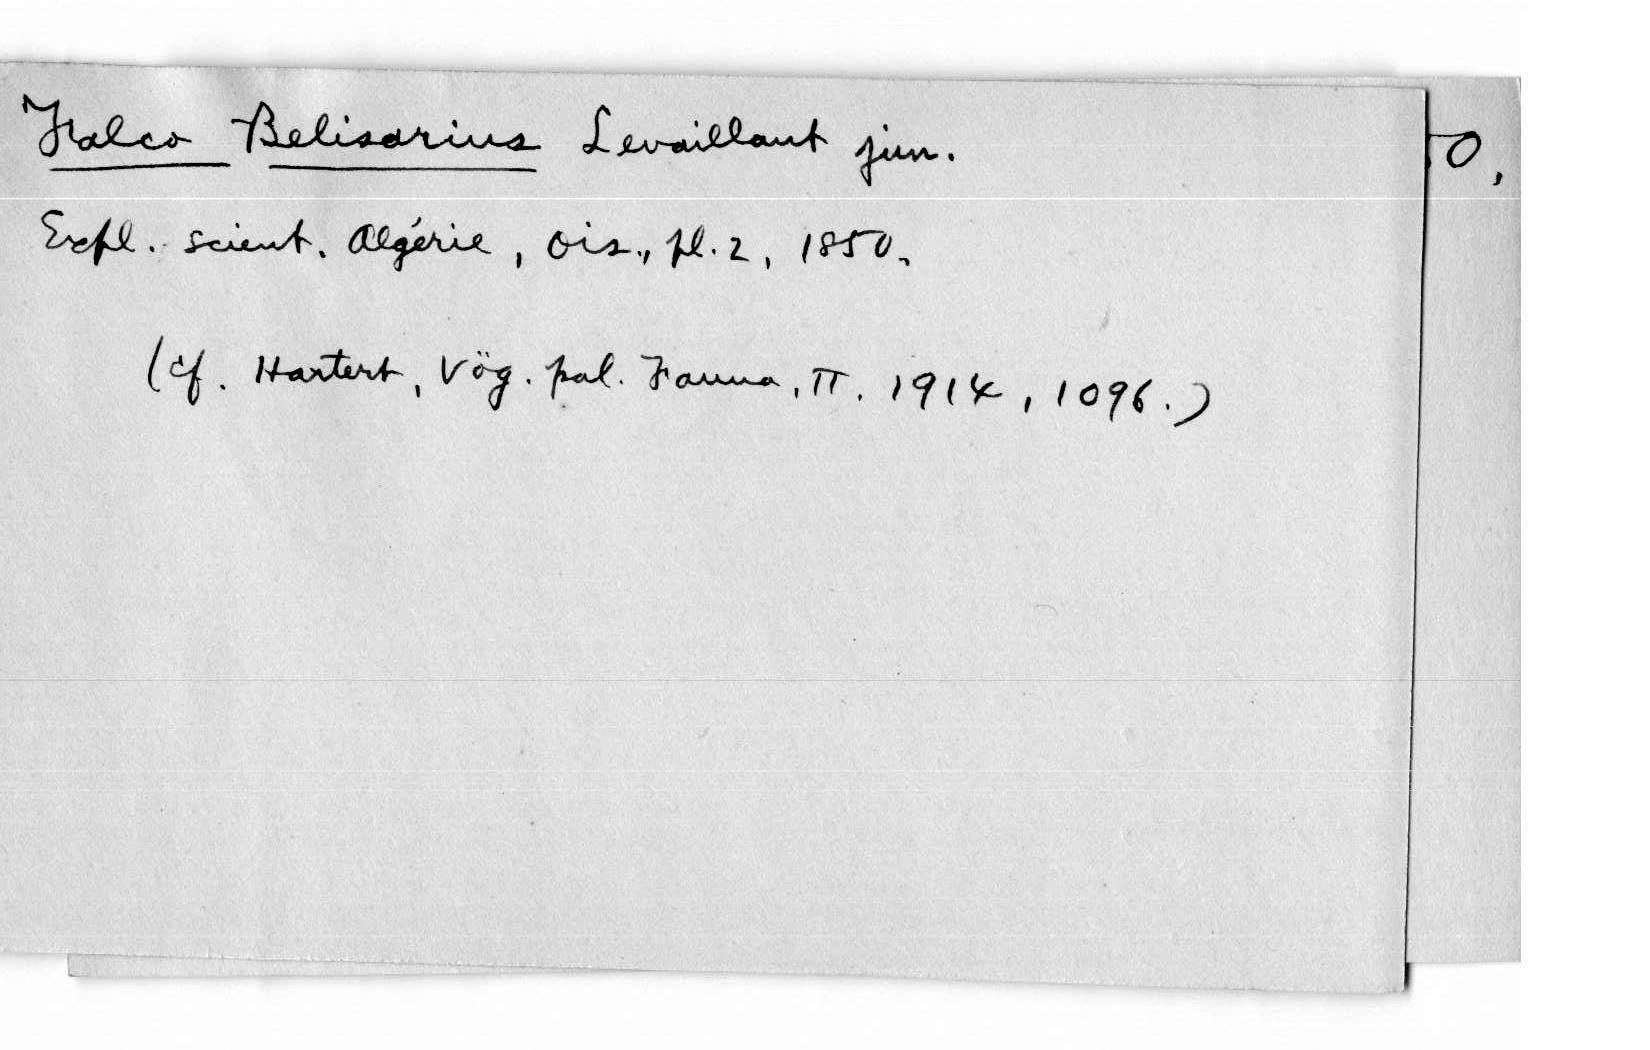 Falco Belisarius Levaillant jun.
50,
Expl. scient. Algérie, Ois., pl. 2, 1850.
(cf. Hartert, Vög. pal. Fauna, II. 1914, 1096.)